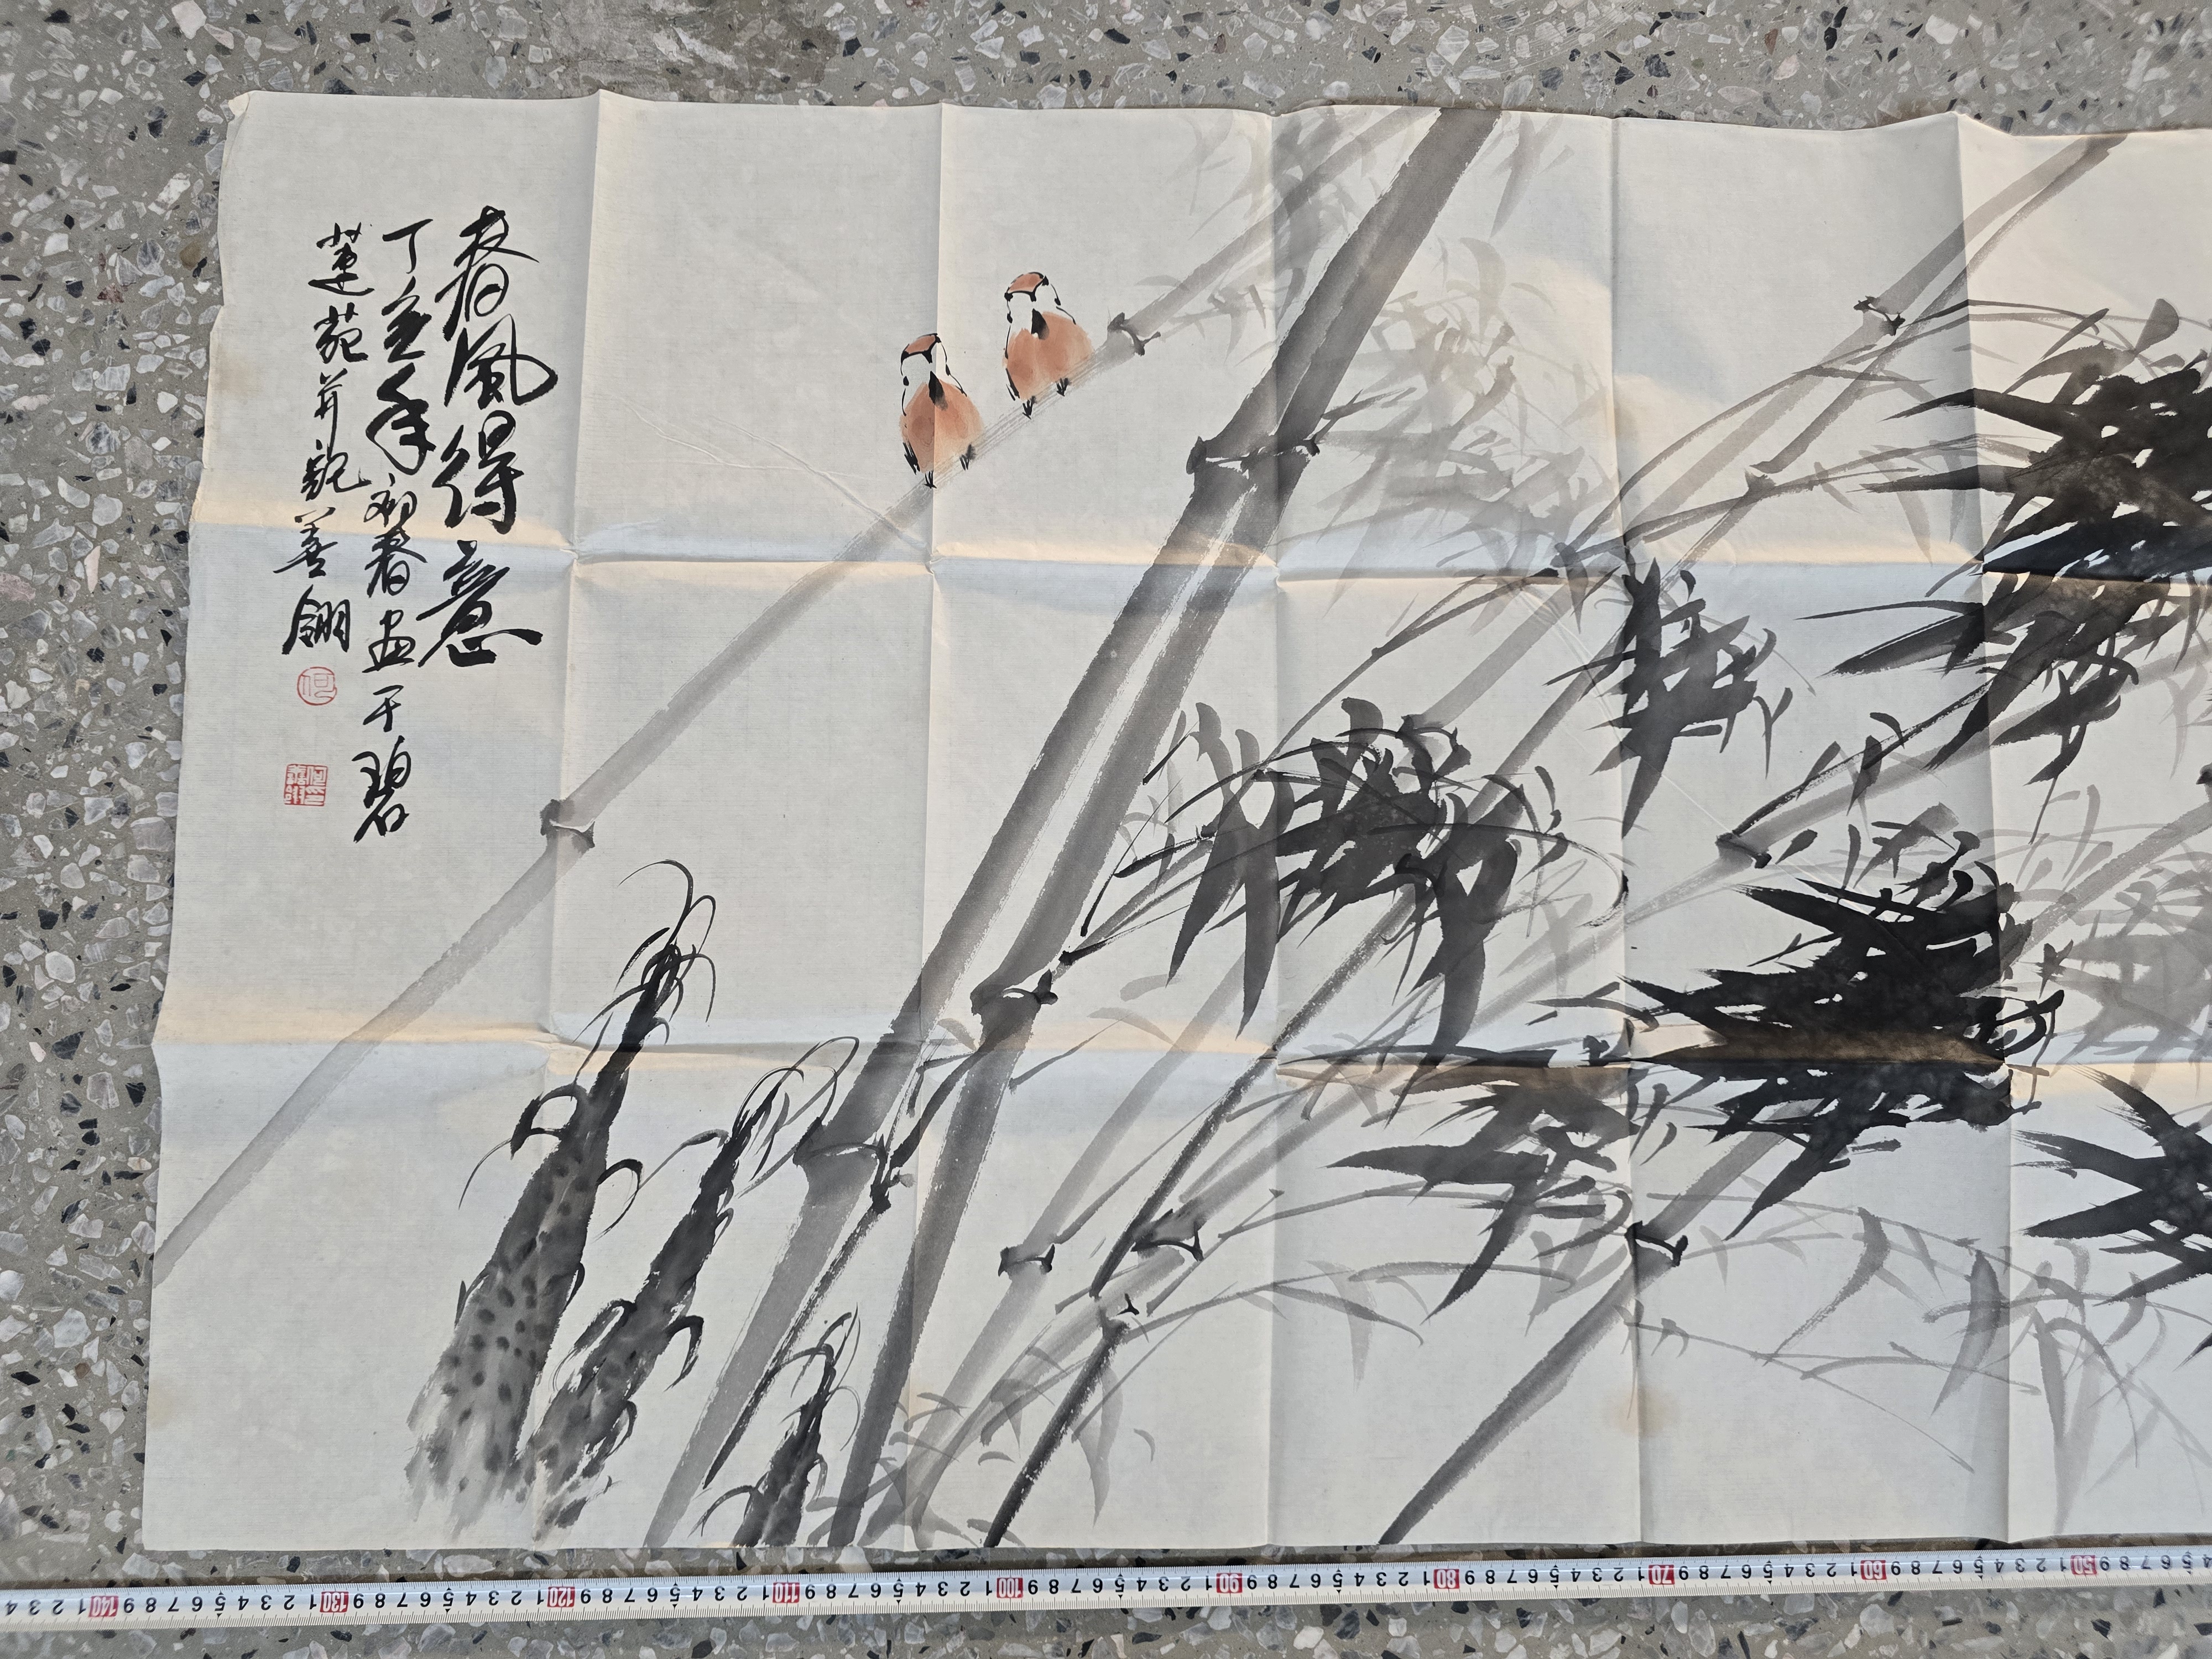 春風得意
丁亥年初春画于碧
蓮苑并題善翎
何
4 5 6 7 8 9 50 1 2 3 4 5 6 7 8 9 60 1 2 3 4 5 6 7 8 9 70 1 2 3 4 5 6 7 8 9 80 1 2 3 4 5 6 7 8 9 90 1 2 3 4 5 6 7 8 9 100 1 2 3 4 5 6 7 8 9 110 1 2 3 4 5 6 7 8 9 120 1 2 3 4 5 6 7 8 9 130 1 2 3 4 5 6 7 8 9 140 1 2 3 4